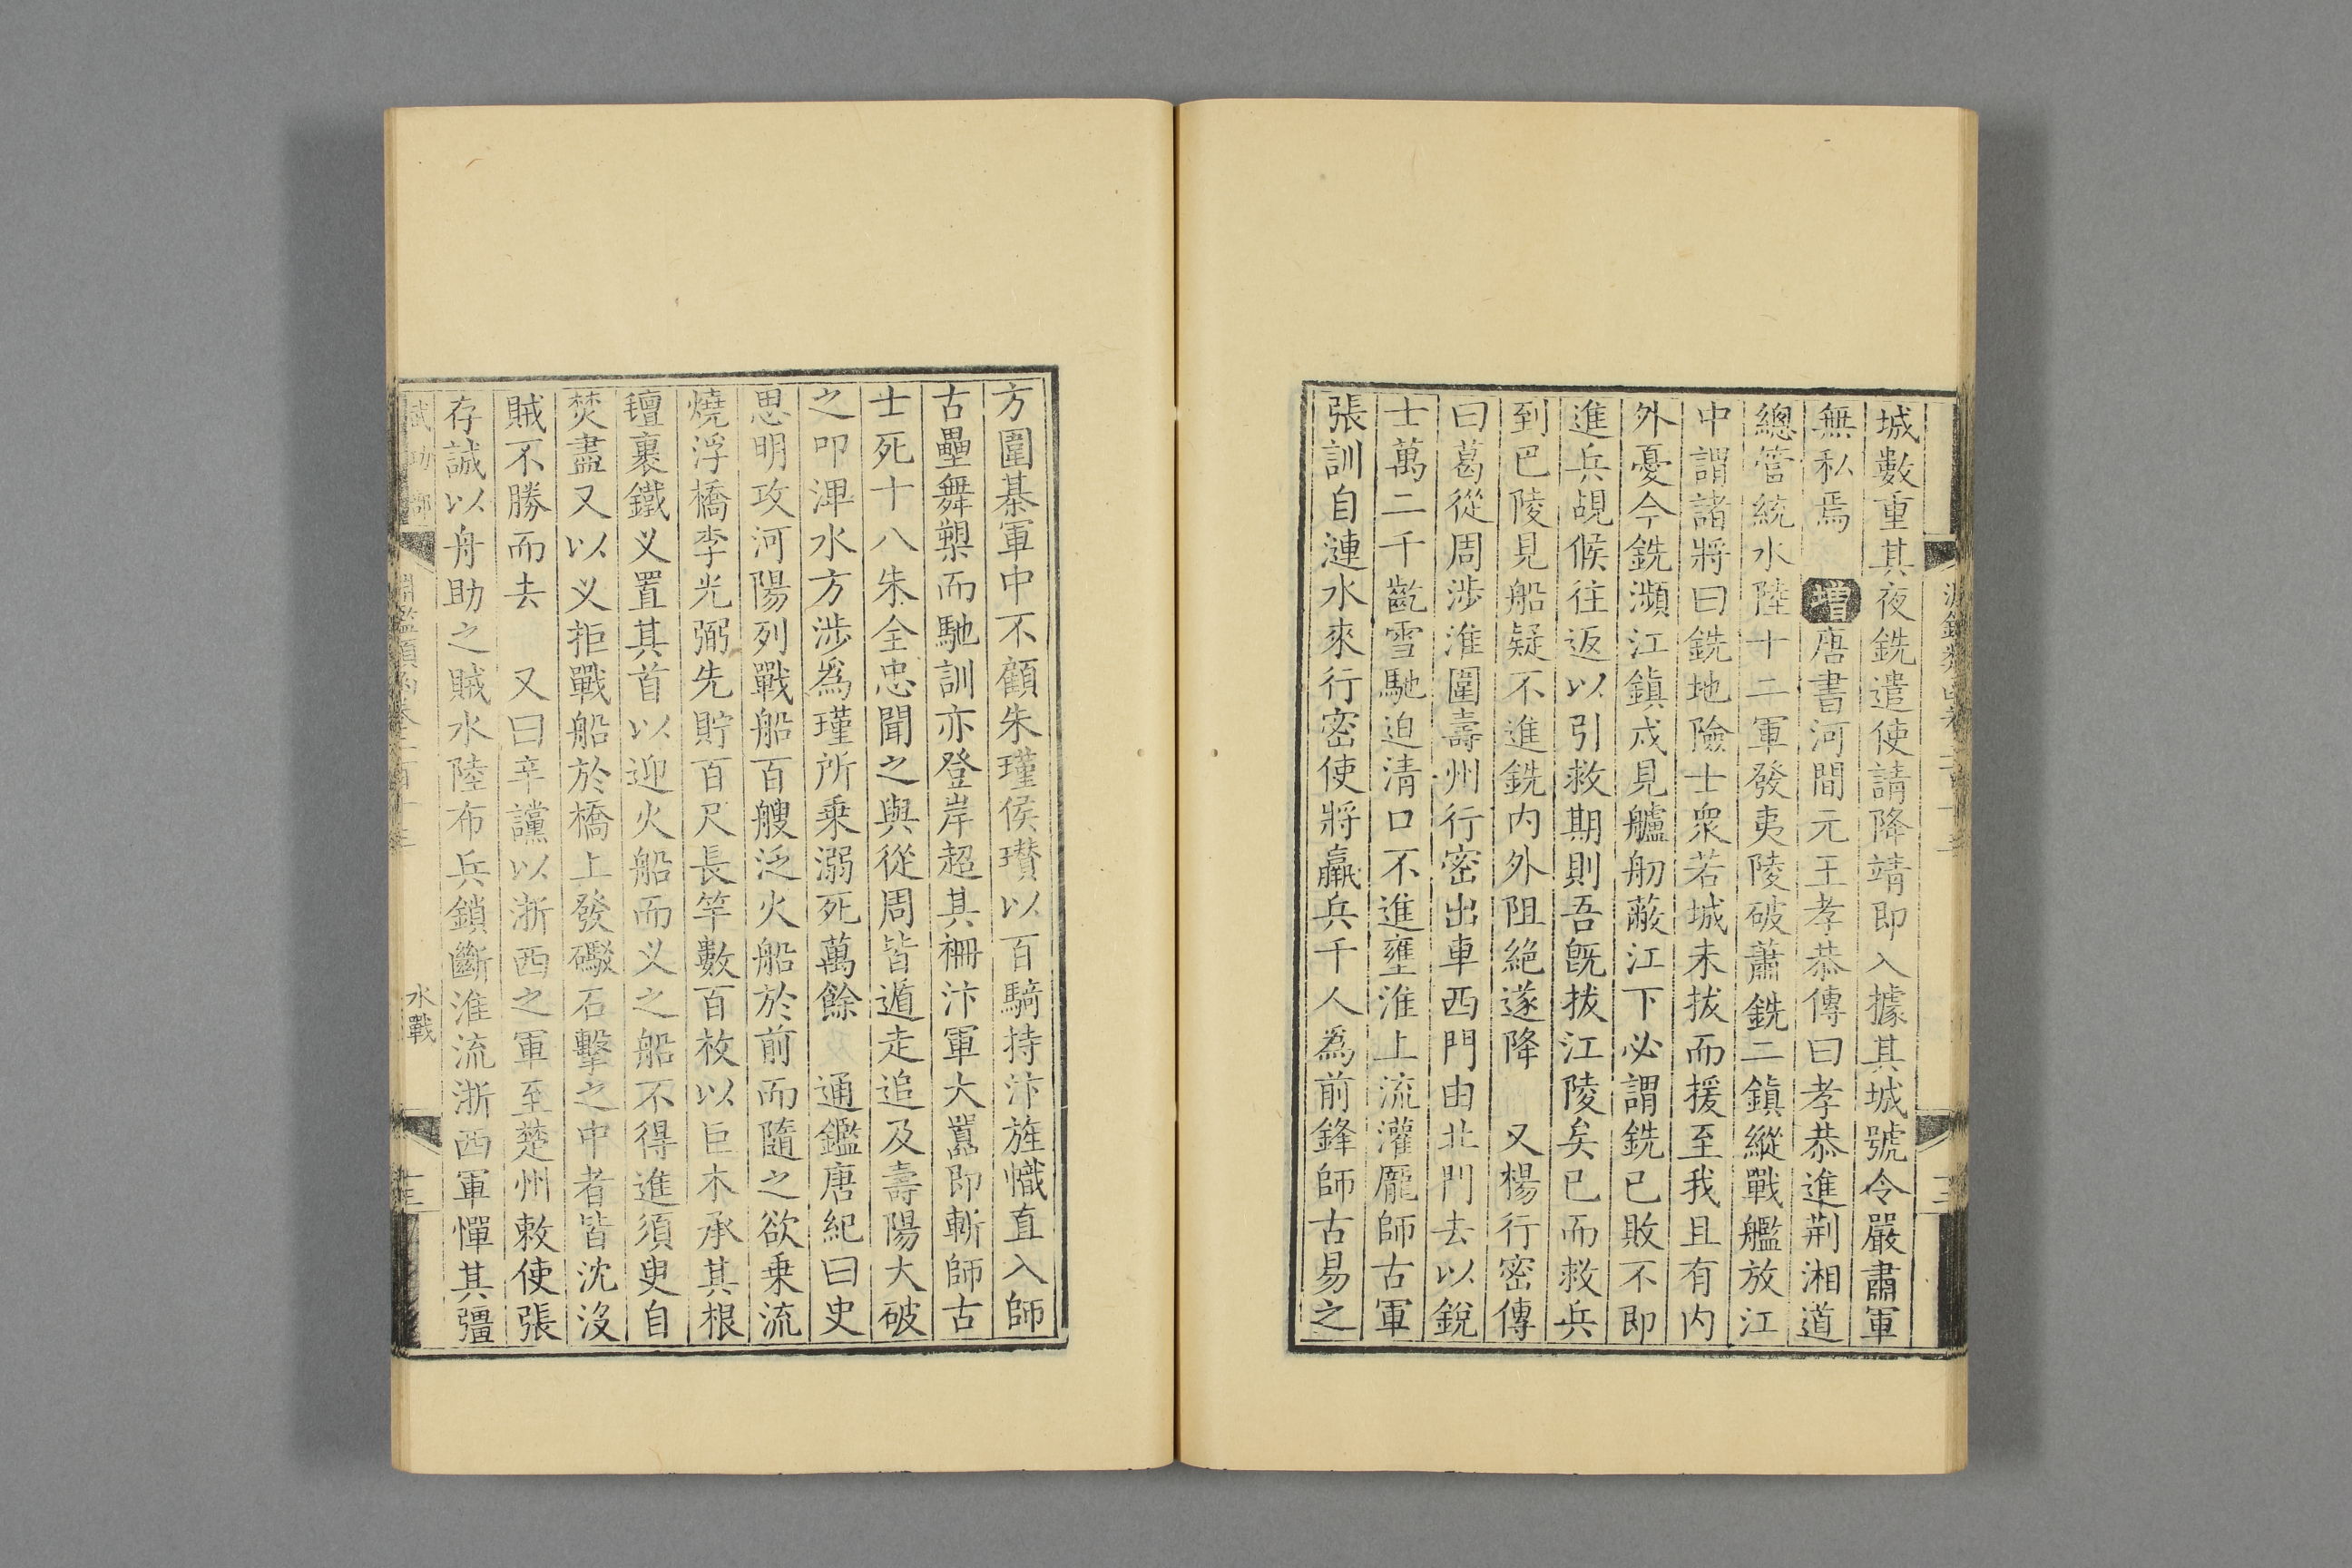 城數重其夜銑遣使請降靖即入據其城號令嚴肅軍
無私焉 增唐書河間元王孝恭傳曰孝恭進荆湘道
總管統水陸十二軍發夷陵破蕭銑二鎮縱戰艦放江
中謂諸將曰銑地險士衆若城未拔而援至我且有内
外憂今銑瀕江鎮戍見艫舠蔽江下必謂銑已敗不即
進兵覘候往返以引救期則吾既拔江陵矣已而救兵
到巴陵見船疑不進銑内外阻絕遂降 又楊行密傳
曰葛從周涉淮圍壽州行密出車西門由北門去以銳
士萬二千齕雪馳迫清口不進壅淮上流灌龎師古軍
張訓自漣水來行密使將羸兵千人爲前鋒師古易之
方圍棊軍中不顧朱瑾侯瓚以百騎持汴旌幟直入師
古壘舞槊而馳訓亦登岸超其柵汴軍大囂即斬師古
士死十八朱全忠聞之與從周皆遁走追及壽陽大破
之叩渒水方涉爲瑾所乗溺死萬餘 通鑑唐紀曰史
思明攻河陽列戰船百艘泛火船於前而隨之欲乗流
燒浮橋李光弼先貯百尺長竿數百枚以巨木承其根
氊裹鐵义置其首以迎火船而义之船不得進須臾自
焚盡又以义拒戰船於橋上發礮石擊之中者皆沈沒
賊不勝而去 又曰辛讜以浙西之軍至楚州敕使張
存誠以舟助之賊水陸布兵鎖斷淮流浙西軍憚其彊
淵鑑類函卷二百十三
水戰
十三